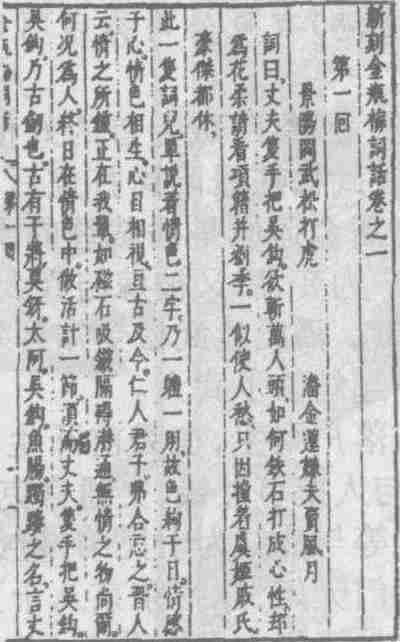 新刻金瓶梅詞話卷之一
第一回
景陽岡武松打虎 潘金蓮嫌夫賣風月
詞曰、丈夫隻手把吳鈎、欲斬萬人頭、如何鉄石打成心性、却
爲花柔、請看項籍并劉季、一似使人愁、只因撞着虞姬戚氏、
豪傑都休、
此一隻詞兒單說着情色二字、乃一體一用、故色絢于目、情感
于心、情色相生、心目相視、亘古及今、仁人君子、弗合忘之、晋人
云、情之所鍾、正在我輩、如磁石吸鐵、隔碍潛通、無情之物尚爾、
何况爲人、終日在情色中、做活計一節、須而丈夫隻手把吳鈎、
吳鈎、乃古劍也、古有干將莫鋣、太阿吳鈎、魚腸、躅䠱之名、言丈